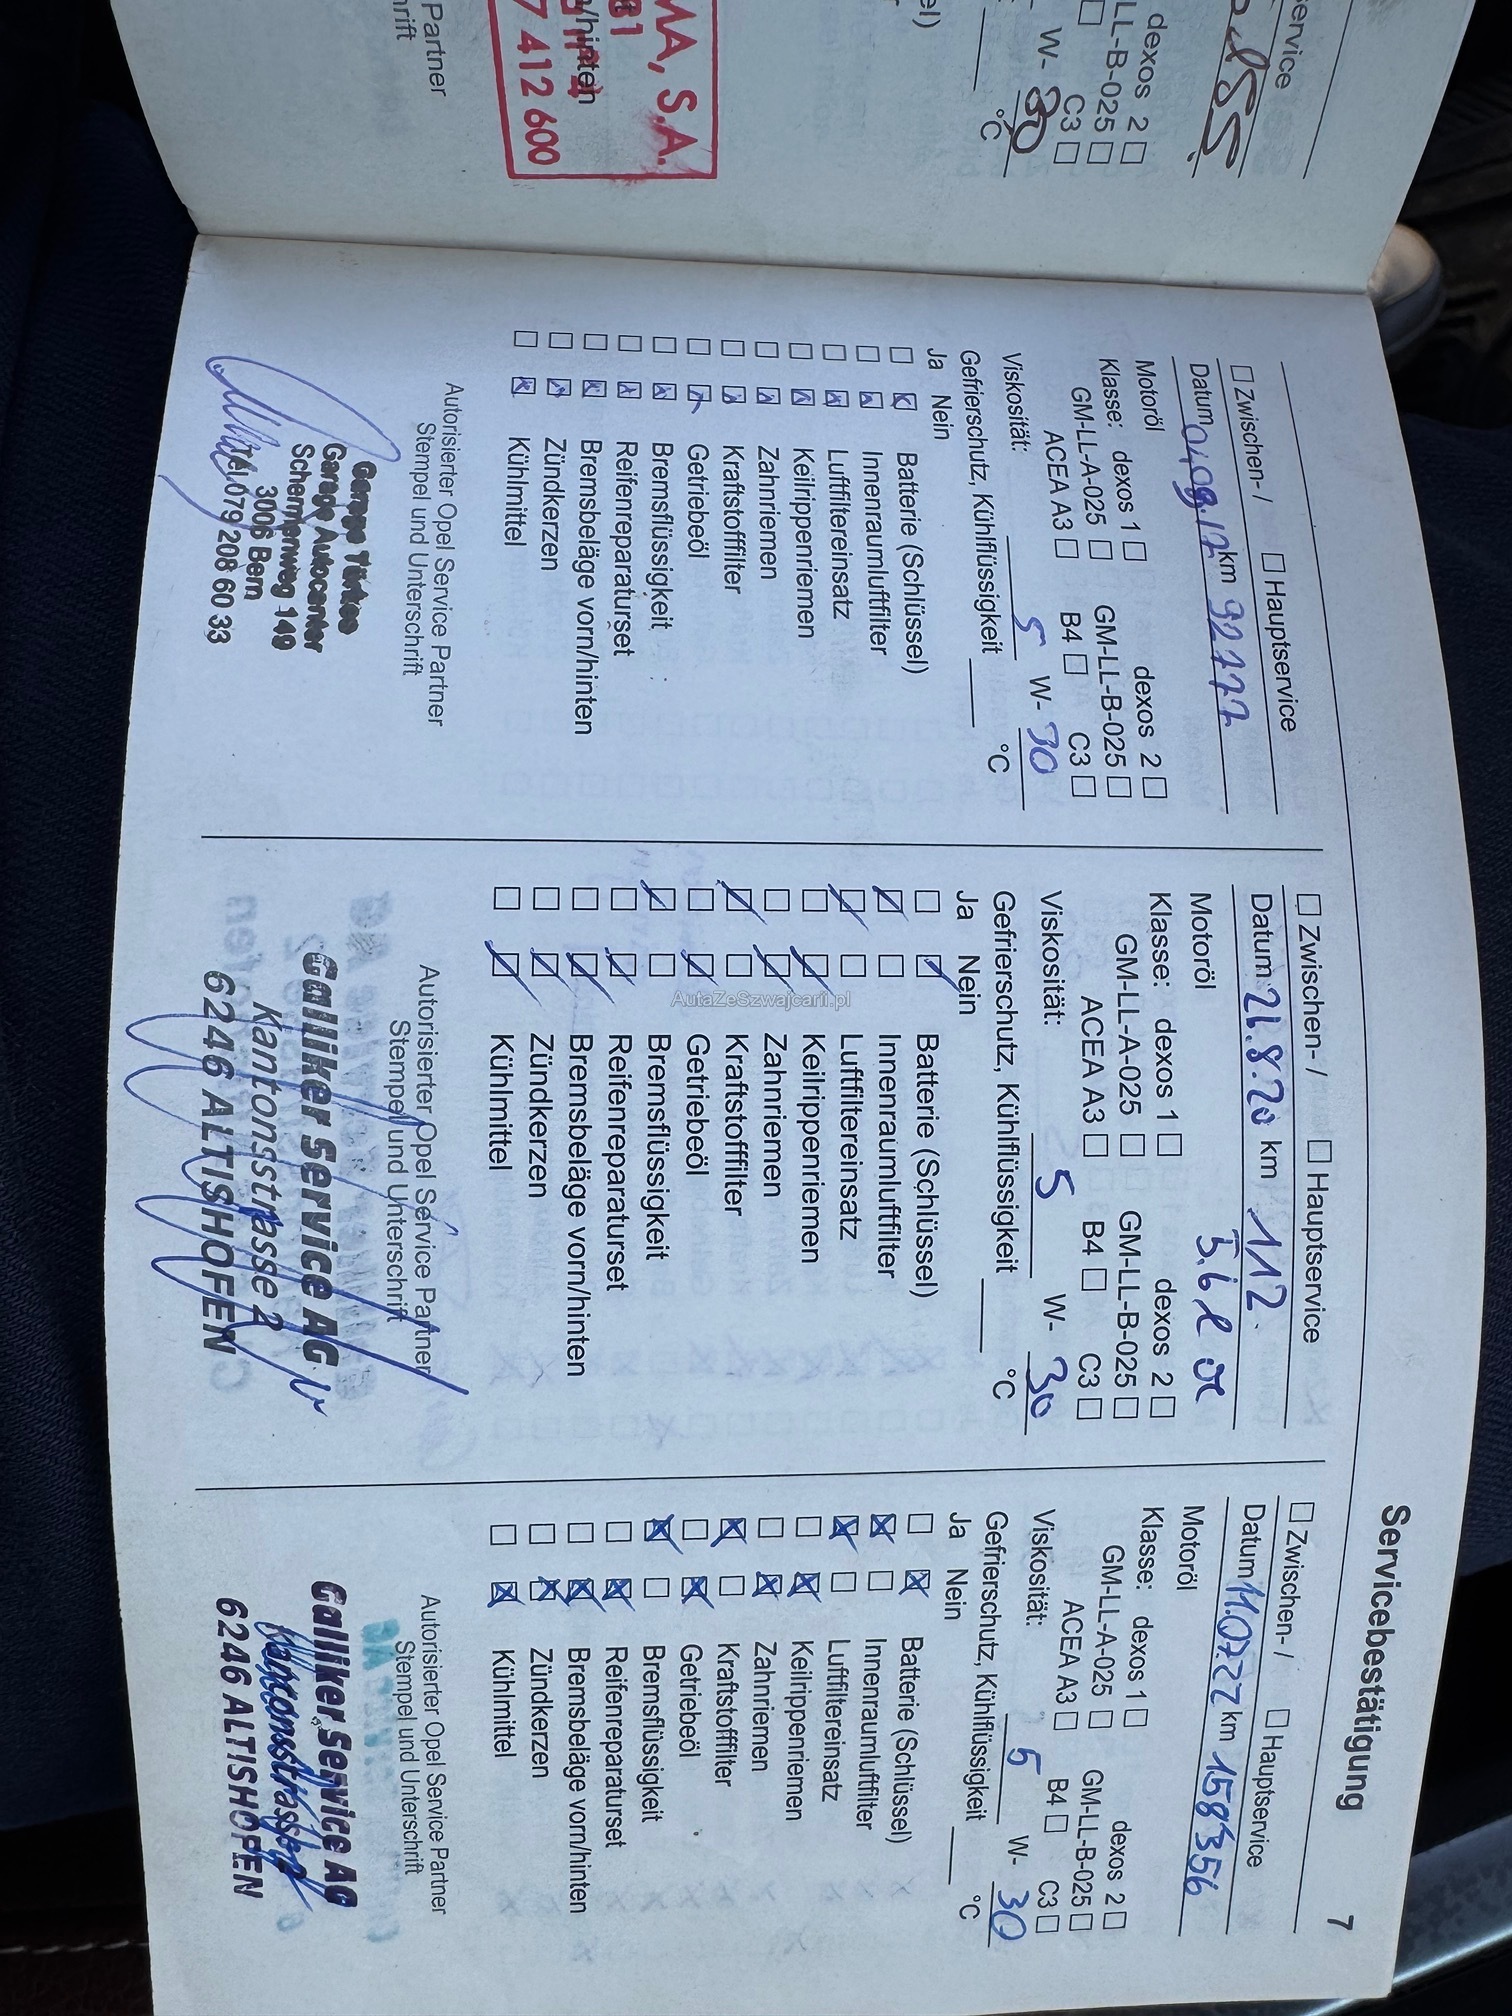 ervice
dexos 2
LL-B-025
C3
W- 30
°C
el)
MA, S.A.
/hinten
7 412 600
Partner
hrift
Servicebestätigung
7
Zwischen- /
Hauptservice
Datum 04.09.17 km 92777
Motoröl
Klasse: dexos 1 dexos 2
GM-LL-A-025 GM-LL-B-025
ACEA A3 B4 C3
Viskosität: 5 W- 30
Gefrierschutz, Kühlflüssigkeit °C
Ja Nein
Batterie (Schlüssel)
Innenraumluftfilter
Luftfiltereinsatz
Keilrippenriemen
Zahnriemen
Kraftstofffilter
Getriebeöl
Bremsflüssigkeit
Reifenreparaturset
Bremsbeläge vorn/hinten
Zündkerzen
Kühlmittel
Autorisierter Opel Service Partner
Stempel und Unterschrift
Garage Autocenter
Schermenweg 149
3006 Bern
Tel 079 208 60 33
Zwischen- /
Hauptservice
Datum 21.8.20 km 112.
Motoröl
Klasse: dexos 1 dexos 2
GM-LL-A-025 GM-LL-B-025
ACEA A3 B4 C3
Viskosität: 5 W- 30
Gefrierschutz, Kühlflüssigkeit °C
Ja Nein
Batterie (Schlüssel)
Innenraumluftfilter
Luftfiltereinsatz
Keilrippenriemen
Zahnriemen
Kraftstofffilter
Getriebeöl
Bremsflüssigkeit
Reifenreparaturset
Bremsbeläge vorn/hinten
Zündkerzen
Kühlmittel
Autorisierter Opel Service Partner
Stempel und Unterschrift
Galliker Service AG
Kantonsstrasse 2
6246 ALTISHOFEN
AutaZeSzwajcarii.pl
Zwischen- /
Hauptservice
Datum 11.07.22 km 158356
Motoröl
Klasse: dexos 1 dexos 2
GM-LL-A-025 GM-LL-B-025
ACEA A3 B4 C3
Viskosität: 5 W- 30
Gefrierschutz, Kühlflüssigkeit °C
Ja Nein
Batterie (Schlüssel)
Innenraumluftfilter
Luftfiltereinsatz
Keilrippenriemen
Zahnriemen
Kraftstofffilter
Getriebeöl
Bremsflüssigkeit
Reifenreparaturset
Bremsbeläge vorn/hinten
Zündkerzen
Kühlmittel
Autorisierter Opel Service Partner
Stempel und Unterschrift
Galliker Service AG
Kantonsstrasse 2
6246 ALTISHOFEN